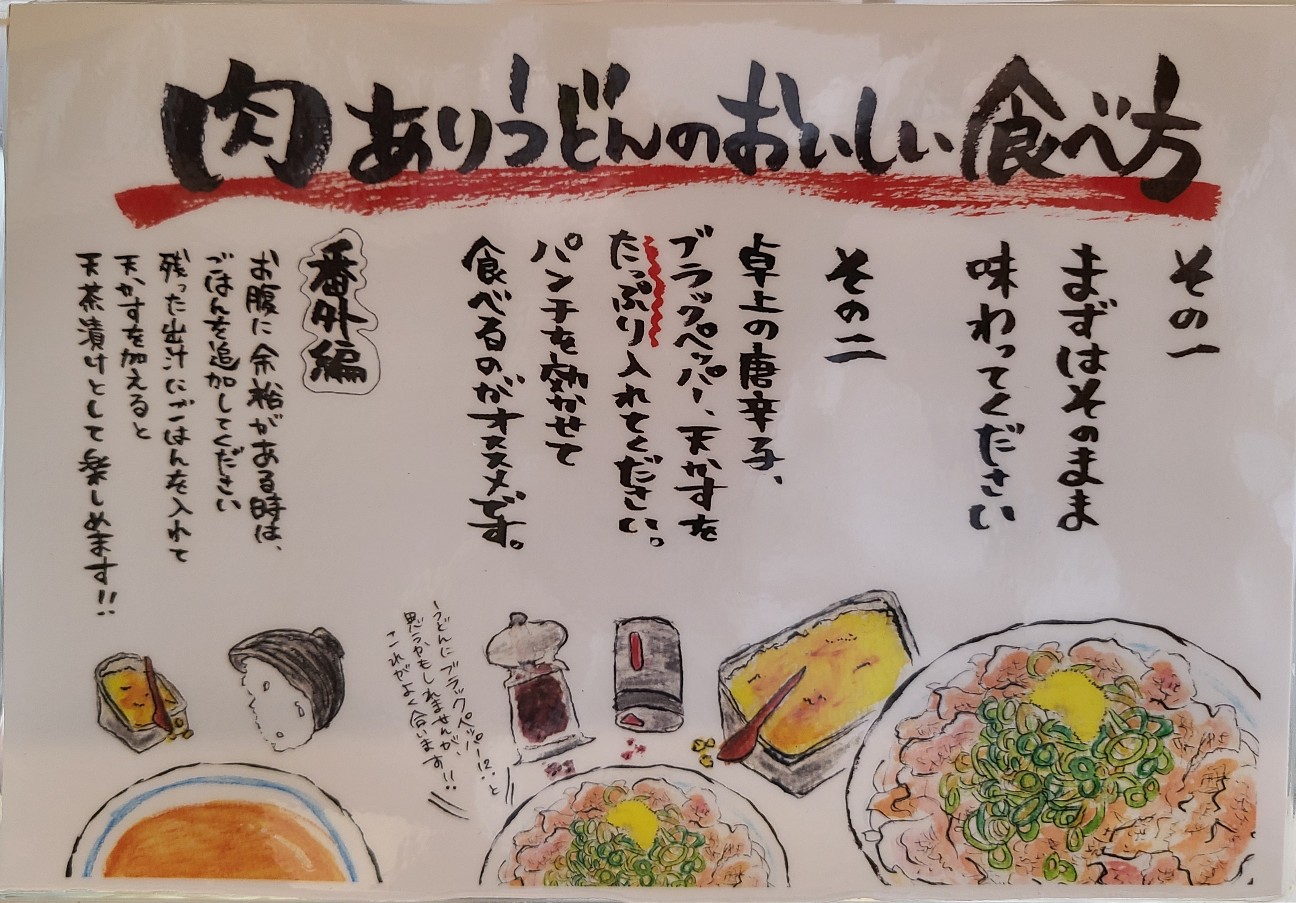 肉ありうどんのおいしい食べ方
その一
まずはそのまま
味わってください
その二
卓上の唐辛子、
ブラックペッパー、天かすを
たっぷり入れてください。
パンチを効かせて
食べるのがオススメです。
番外編
お腹に余裕がある時は、
ごはんを追加してください
残った出汁にごはんを入れて
天かすを加えると
天茶漬けとして楽しめます!!
うどんにブラックペッパー!?と
思うかもしれませんが、
これがよく合います!!